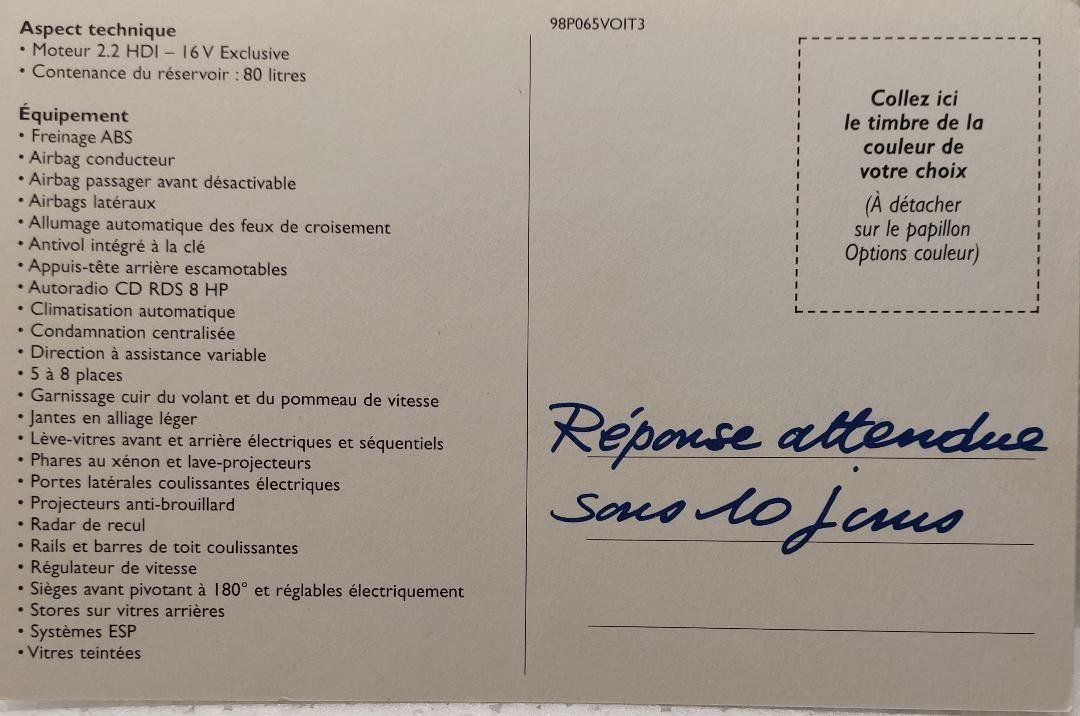 Aspect technique
• Moteur 2.2 HDI – 16V Exclusive
• Contenance du réservoir : 80 litres
Équipement
• Freinage ABS
• Airbag conducteur
• Airbag passager avant désactivable
• Airbags latéraux
• Allumage automatique des feux de croisement
• Antivol intégré à la clé
• Appuis-tête arrière escamotables
• Autoradio CD RDS 8 HP
• Climatisation automatique
• Condamnation centralisée
• Direction à assistance variable
• 5 à 8 places
• Garnissage cuir du volant et du pommeau de vitesse
• Jantes en alliage léger
• Lève-vitres avant et arrière électriques et séquentiels
• Phares au xénon et lave-projecteurs
• Portes latérales coulissantes électriques
• Projecteurs anti-brouillard
• Radar de recul
• Rails et barres de toit coulissantes
• Régulateur de vitesse
• Sièges avant pivotant à 180° et réglables électriquement
• Stores sur vitres arrières
• Systèmes ESP
• Vitres teintées
98P065VOIT3
Collez ici
le timbre de la
couleur de
votre choix
(À détacher
sur le papillon
Options couleur)
Réponse attendue
sous 10 jours